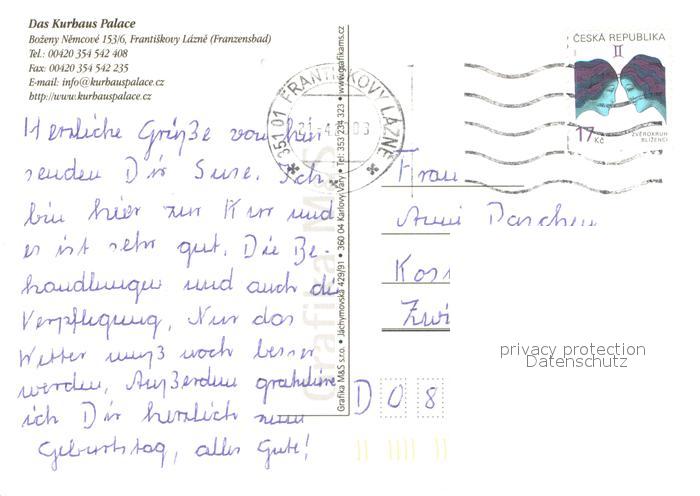 Das Kurhaus Palace
Boženy Němcové 153/6, Františkovy Lázně (Franzensbad)
Tel.: 00420 354 542 408
Fax: 00420 354 542 235
E-mail: info@kurbauspalace.cz
http://www.kurbauspalace.cz
Herzliche Grüße von hier
senden Dir Suse. Ich
bin hier zur Kur und
es ist sehr gut. Die Be-
handlungen und auch die
Verpflegung, Nur das
Wetter muß noch besser
werden, Außerdem gratuliere
ich Dir herzlich zum
Geburtstag, alles Gute!
Grafika M&S s.r.o. • Jáchymovská 429/91 • 360 04 Karlovy Vary • Tel: 353 234 323 • www.grafikams.cz
Grafika M&S
351 01 FRANTIŠKOVY LÁZNĚ
ČESKÁ REPUBLIKA
II
17 Kč
ZVĚROKRUH
BLÍŽENCI
Frau
Anni
Kos
Zwi
D 0 8
privacy protection
Datenschutz